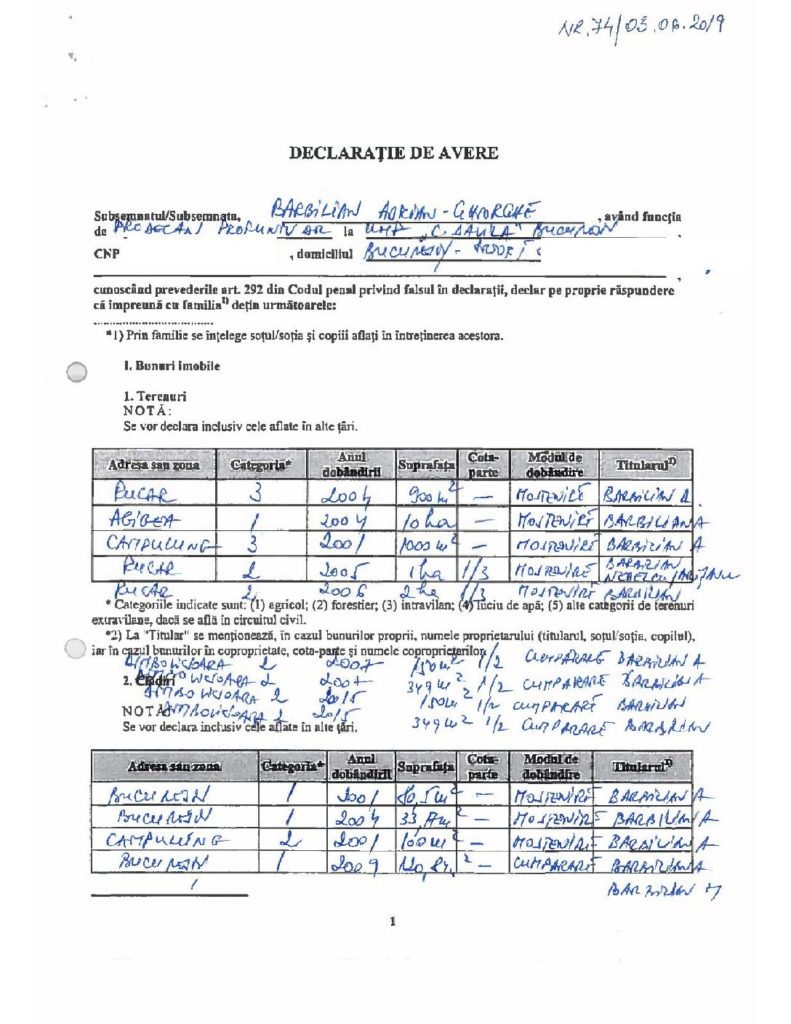 NR. 74/03.06.2019
DECLARAŢIE DE AVERE
Subsemnatul/Subsemnata, BARBILIAN ADRIAN-GHEORGHE , având funcţia
de PRODECAN PROF UNIV DR la UMF "C. DAVILA" BUCURESTI ,
CNP , domiciliul BUCURESTI -
,
cunoscând prevederile art. 292 din Codul penal privind falsul în declaraţii, declar pe proprie răspundere
că împreună cu familia1) deţin următoarele:
*1) Prin familie se înţelege soţul/soţia şi copiii aflaţi în întreţinerea acestora.
I. Bunuri imobile
1. Terenuri
NOTĂ:
Se vor declara inclusiv cele aflate în alte ţări.
Adresa sau zona Categoria* Anul dobândirii Suprafaţa Cota-parte Modul de dobândire Titularul2)
RUCAR 3 2004 900 m2 — MOSTENIRE BARBILIAN A.
AGIGEA 1 2004 10 ha — MOSTENIRE BARBILIAN A
CAMPULUNG 3 2001 1000 m2 — MOSTENIRE BARBILIAN A
RUCAR 2 2005 1 ha 1/3 MOSTENIRE BARBILIAN
RUCAR 2 2006 2 ha 1/3 MOSTENIRE BARBILIAN
* Categoriile indicate sunt: (1) agricol; (2) forestier; (3) intravilan; (4) luciu de apă; (5) alte categorii de terenuri
extravilane, dacă se află în circuitul civil.
*2) La "Titular" se menţionează, în cazul bunurilor proprii, numele proprietarului (titularul, soţul/soţia, copilul),
iar în cazul bunurilor în coproprietate, cota-parte şi numele coproprietarilor.
DIMBOVICIOARA 2 2007 150 m2 1/2 CUMPARARE BARBILIAN A
2. Clădiri
DIMBOVICIOARA 2 2007 349 m2 1/2 CUMPARARE BARBILIAN A
DIMBOVICIOARA 2 2015 150 m2 1/2 CUMPARARE BARBILIAN
NOTĂ:
DIMBOVICIOARA 2 2015 349 m2 1/2 CUMPARARE BARBILIAN
Se vor declara inclusiv cele aflate în alte ţări.
Adresa sau zona Categoria* Anul dobândirii Suprafaţa Cota-parte Modul de dobândire Titularul2)
BUCURESTI 1 2001 80,5 m2 — MOSTENIRE BARBILIAN A
BUCURESTI 1 2004 m2 — MOSTENIRE BARBILIAN A
CAMPULUNG 2 2001 100 m2 — MOSTENIRE BARBILIAN A
BUCURESTI 1 2009 — CUMPARARE BARBILIAN A
BARBILIAN
1